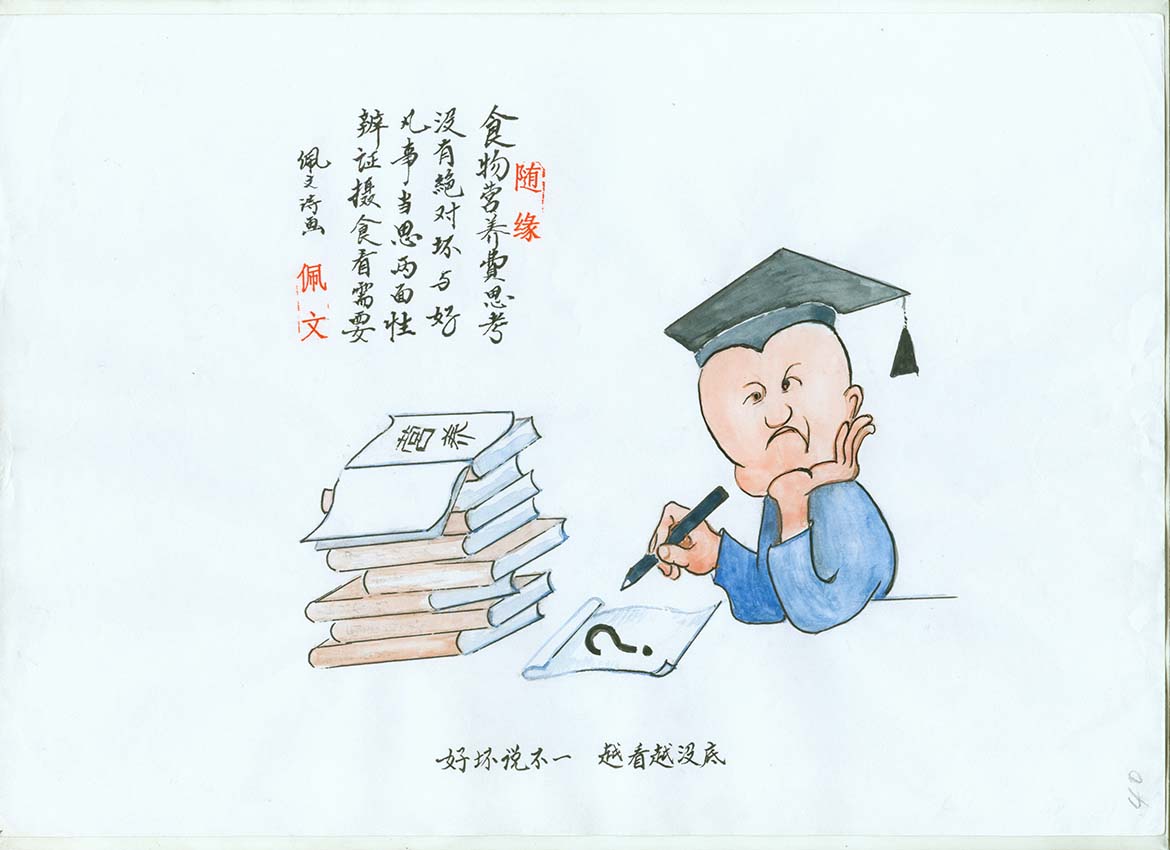 随缘
食物营养費思考
没有絶对坏与好
凡事当思两面性
辨证摄食看需要
佩文诗画
佩文
营养
?
好坏说不一 越看越没底
40